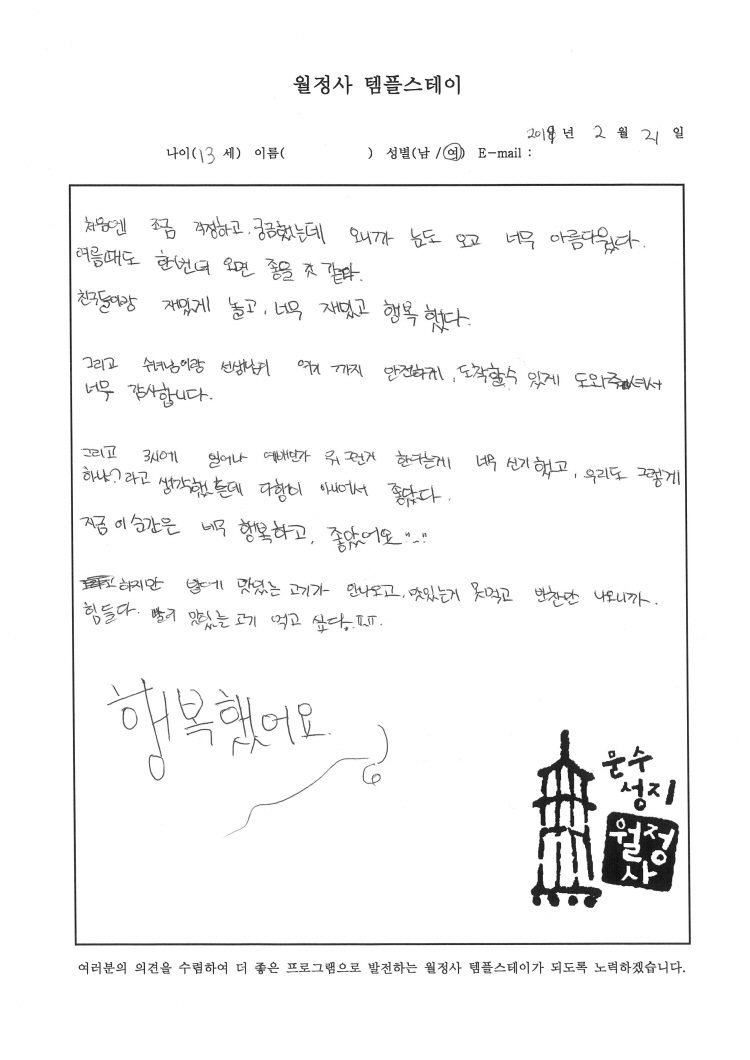 월정사 템플스테이
2019 년 2 월 21 일
나이(13 세) 이름( ) 성별(남 / 여) E-mail :
처음엔 조금 걱정하고, 궁금했는데 오니까 눈도 오고 너무 아름다웠다.
여름때도 한번더 오면 좋을 것 같다.
친구들이랑 재밌게 놀고, 너무 재밌고 행복 했다.
그리고 수녀님이랑 선생님이 여기 까지 안전하게, 도착할수 있게 도와주셔서
너무 감사합니다.
그리고 3시에 일어나 예배인가 뭐 그런거 한다는게 너무 신기했고, 우리도 그렇게
하나? 라고 생각했는데 다행이 아니어서 좋았다.
지금 이 순간은 너무 행복하고, 좋았어요
하지만 밥에 맛있는 고기가 안나오고, 맛있는거 못먹고 반찬만 나오니까.
힘들다. 빨리 맛있는 고기 먹고 싶다. ㅠㅠ.
행복했어요.
문수
성지
월정
사
여러분의 의견을 수렴하여 더 좋은 프로그램으로 발전하는 월정사 템플스테이가 되도록 노력하겠습니다.